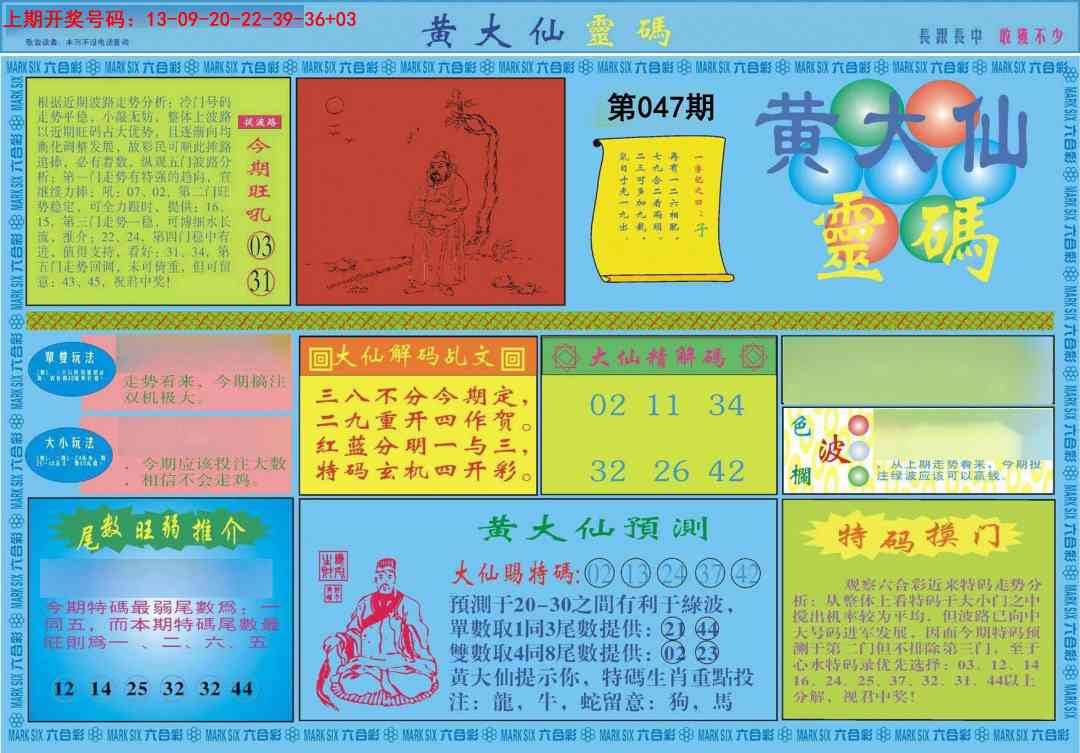 上期开奖号码：13-09-20-22-39-36+03
敬告读者：本刊不设电话查询
黄大仙靈碼
長跟長中 收獲不少
MARK SIX 六合彩
根据近期波路走势分析：冷门号码
走势平稳，小凝无妨，整体上波路
以近期旺码占大优势，且逐渐向均
衡化调整发展，故彩民可顺此捧路
追捧，必有着数，纵观五门波路分
析：第一门走势有特强的趋向，宜
继续力捧：吼：07、02，第二门旺
势稳定，可全力跟时，提供：16、
15，第三门走势一稳，可博细水长
流，推介：22、24，第四门稳中有
进，值得支持，看好：31、34，第
五门走势回调，未可倚重，但可留
意：43、45，祝君中奖！
捉波路
今期旺吼
03
31
第047期
一字记之曰：子
再有一二六相配，
七九合二看两頭，
二三可多加九載，
鼠自子先一九出。
黄大仙
靈碼
單雙玩法
走势看来，今期搞注
双机极大。
大小玩法
，今期应该投注大数
，相信不会走鸡。
大仙解码乩文
三八不分今期定，
二九重开四作贺。
红蓝分明一与三，
特码玄机四开彩。
大仙精解碼
02 11 34
32 26 42
色波欄
，从上期走势看来，今期投
注绿波应该可以赢钱。
尾数旺弱推介
今期特碼最弱尾數爲：一
同五，而本期特碼尾數最
旺則爲一、二、六、五
12 14 25 32 32 44
黄大仙預測
大仙賜特碼：02 13 24 37 42
預測于20-30之間有利于綠波，
單數取1同3尾數提供：21 44
雙數取4同8尾數提供：02 23
黄大仙提示你，特碼生肖重點投
注：龍，牛，蛇留意：狗，馬
特码摸门
观察六合彩近来特码走势分
析：从整体上看特码于大小门之中
搅出机率较为平均，但波路已向中
大号码进军发展，因而今期特码预
测于第二门但不排除第三门，至于
心水特码录优先选择：03、12、14
16、24、25、37、32、31、44以上
分解，祝君中奖！